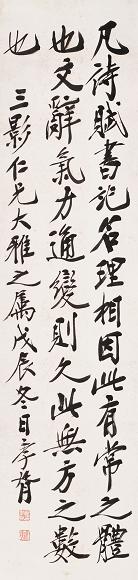 凡詩賦書記名理相因此有常之體
也文辭氣力通變則久此無方之數
也
三影仁兄大雅之屬戊辰冬日孝胥